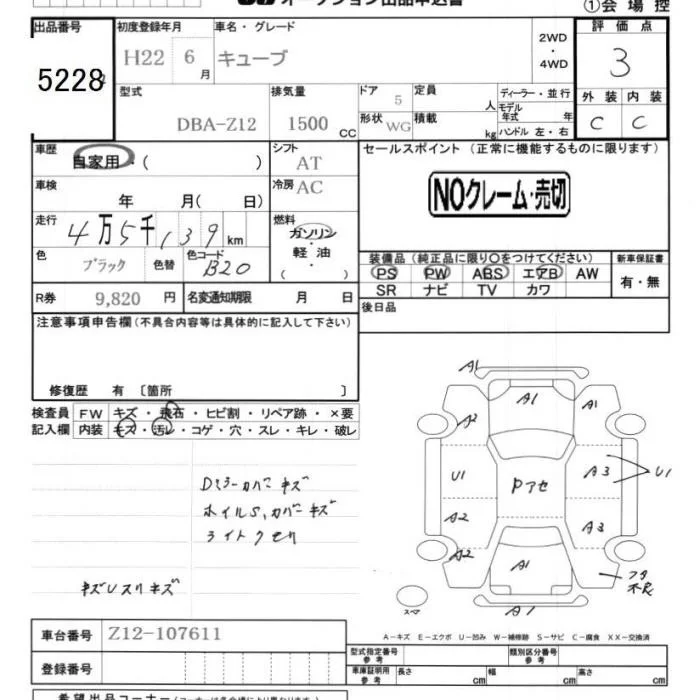 オークション出品申込書
①会場控
出品番号 5228
初度登録年月 H22 6月
車名・グレード キューブ
2WD・4WD
評価点 3
外装 内装
C C
型式 DBA-Z12
排気量 1500 CC
ドア 5
定員 人
形状 WG
積載 kg
ディーラー・並行
モデル年式 年
ハンドル 左・右
車歴 自家用・( )
シフト AT
車検 年 月( 日)
冷房 AC
走行 4万5千139km
燃料 ガソリン・軽油・( )
色 ブラック 色替
色コード B20
R券 9,820 円
名変通知期限 月 日
セールスポイント (正常に機能するものに限ります)
NOクレーム・売切
装備品(純正品に限り○をつけてください)
PS PW ABS エアB AW
SR ナビ TV カワ
新車保証書
有・無
後日品
注意事項申告欄(不具合内容等は具体的に記入して下さい)
修復歴 有 〔箇所 〕
検査員記入欄
FW キズ・飛石・ヒビ割・リペア跡・×要
内装 キズ・汚レ・コゲ・穴・スレ・キレ・破レ
Dミラーカバーキズ
ホイルS,カバーキズ
ライトクモリ
キズUスリキズ
A1
A1
A2
A1
U1
Pアセ
A3
U1
A2
A3
A2
A1
フタ不良
スペア
A1
A-キズ E-エクボ U-凹み W-補修跡 S-サビ C-腐食 XX-交換済
車台番号 Z12-107611
登録番号
型式指定番号 参考
類別区分番号 参考
車庫証明用 参考 長さ cm 幅 cm 高さ cm
希望出品コーナー